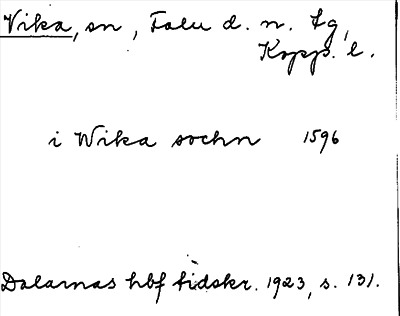 Vika, sn, Falu d. n. tg,
Kopp. l.
i Wika sochn 1596
Dalarnas hbf tidskr. 1923, s. 131.